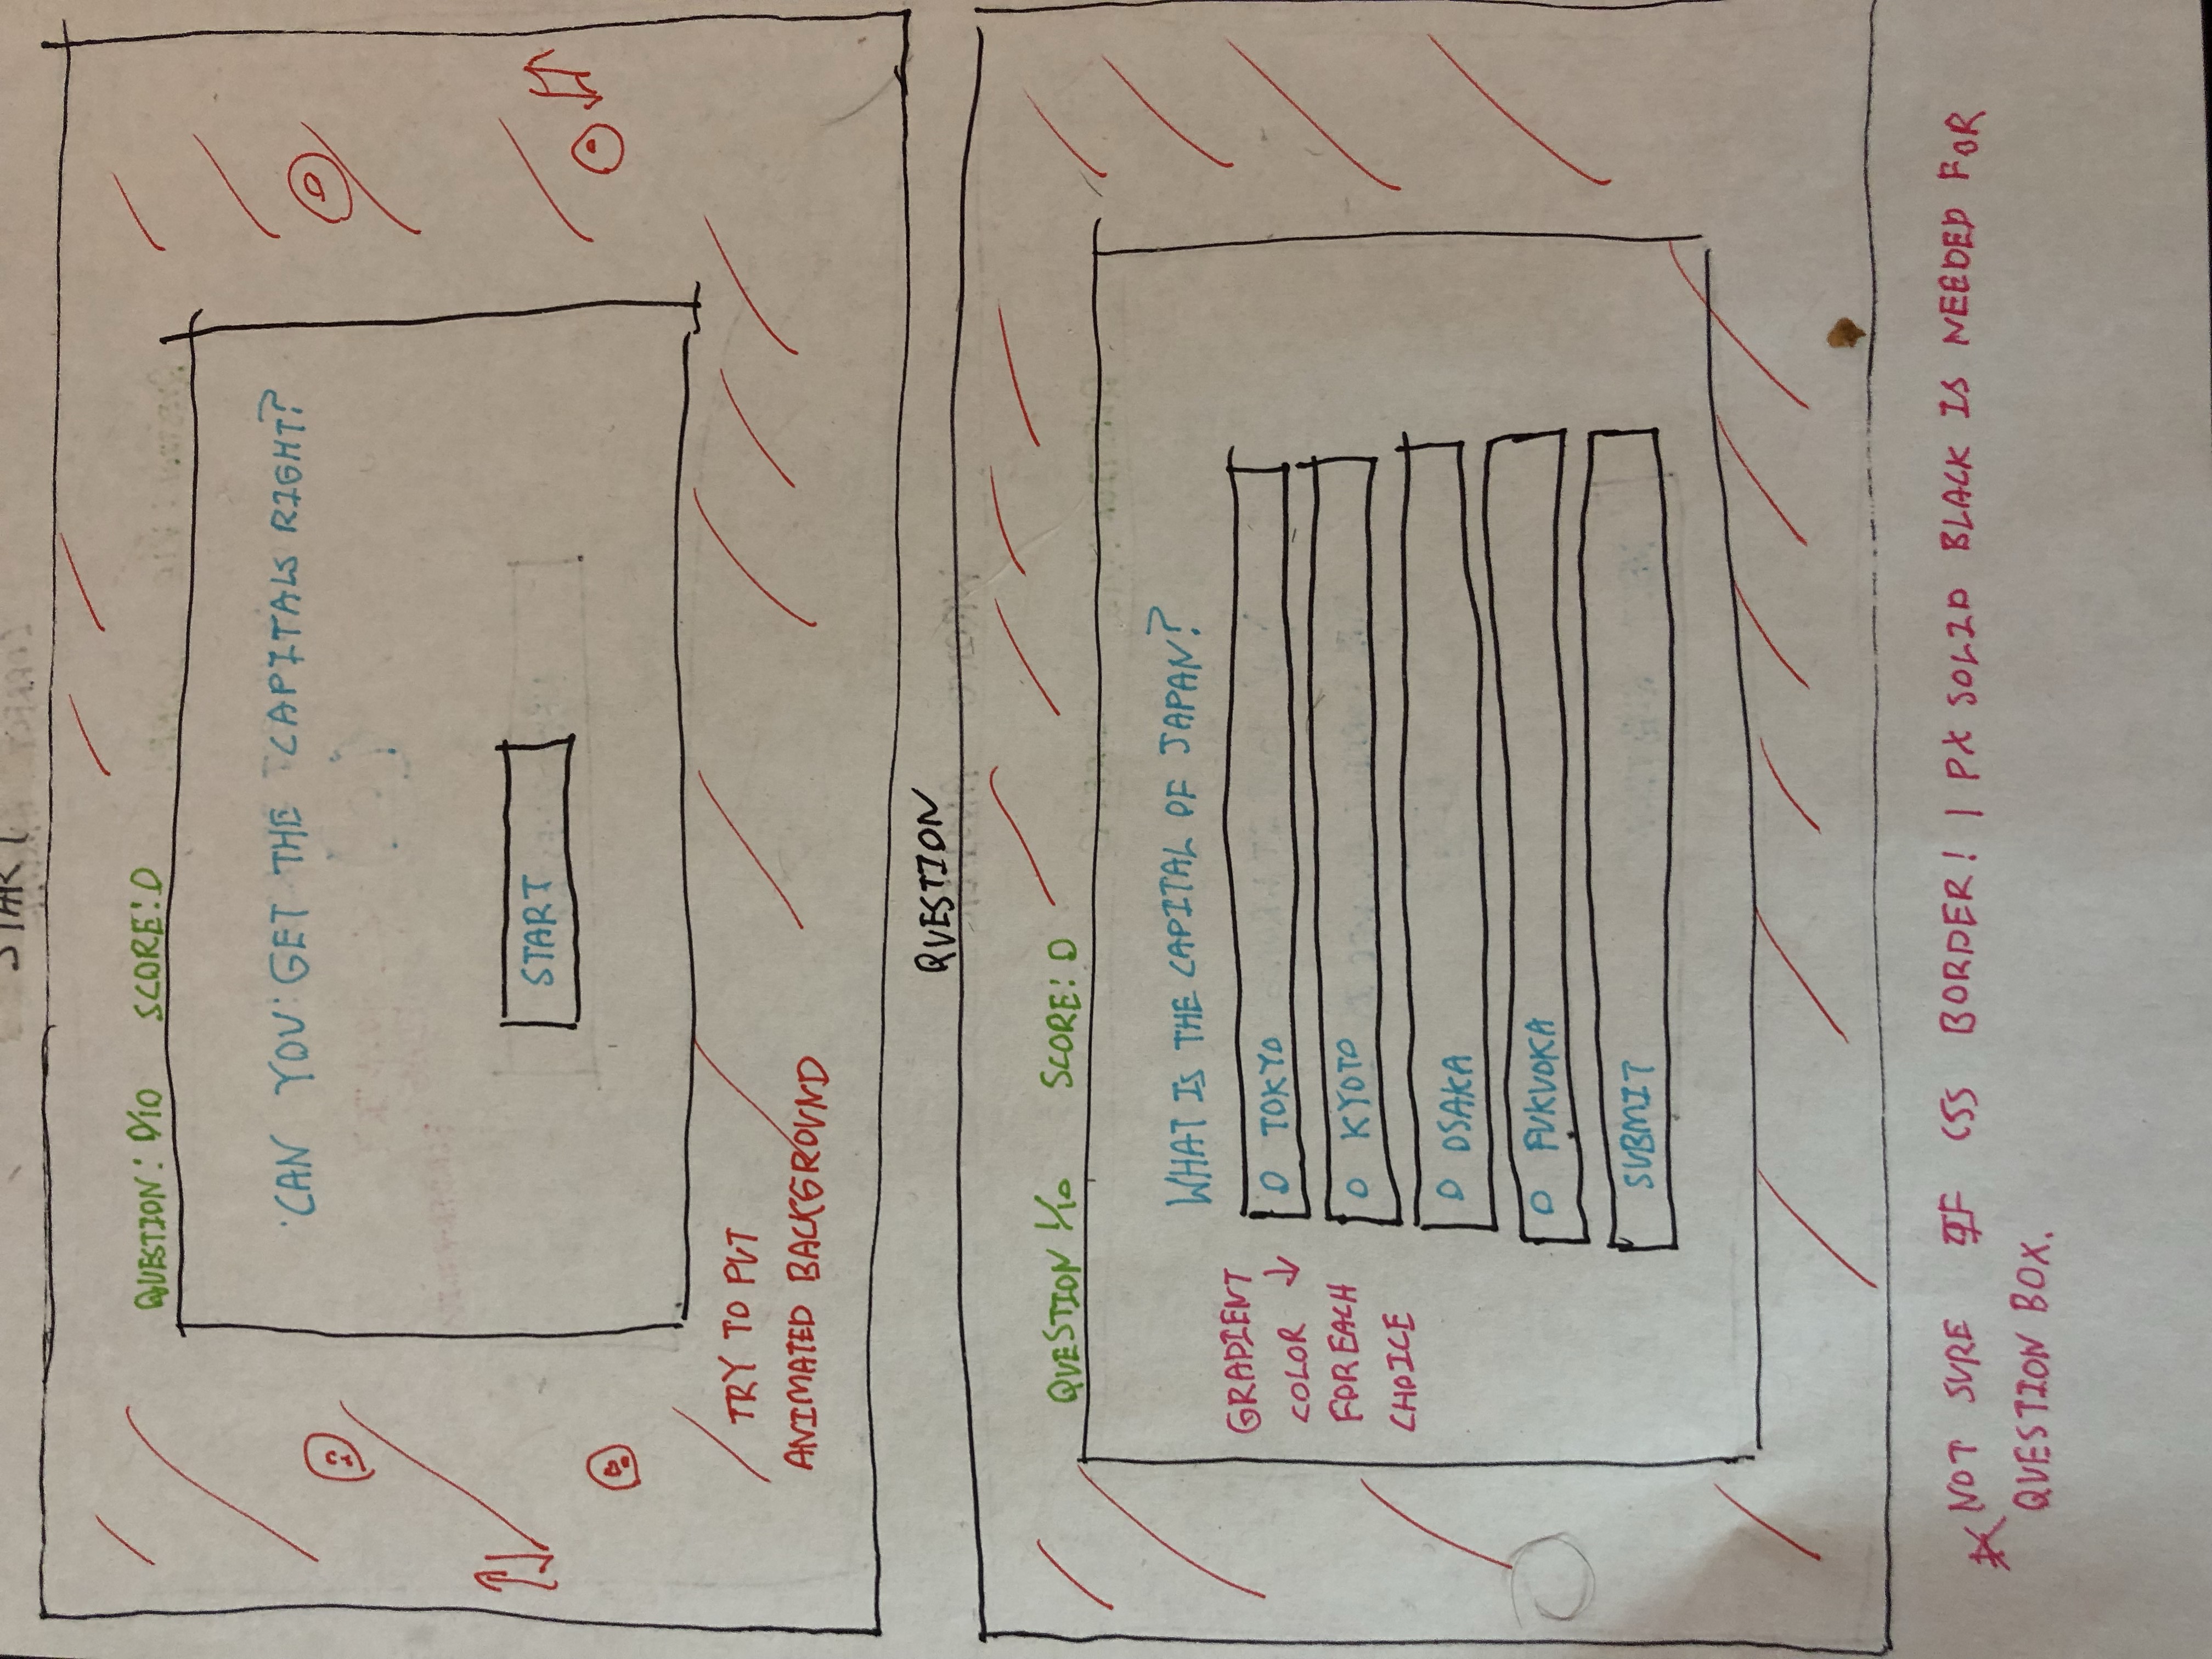 START
QUESTION: 0/10 SCORE: 0
CAN YOU GET THE CAPITALS RIGHT?
START
TRY TO PUT
ANIMATED BACKGROUND
QUESTION
QUESTION 1/10 SCORE: 0
WHAT IS THE CAPITAL OF JAPAN?
GRADIENT
COLOR ↓
FOR EACH
CHOICE
TOKYO
KYOTO
OSAKA
FUKUOKA
SUBMIT
* NOT SURE IF CSS BORDER: 1 PX SOLID BLACK IS NEEDED FOR
QUESTION BOX.